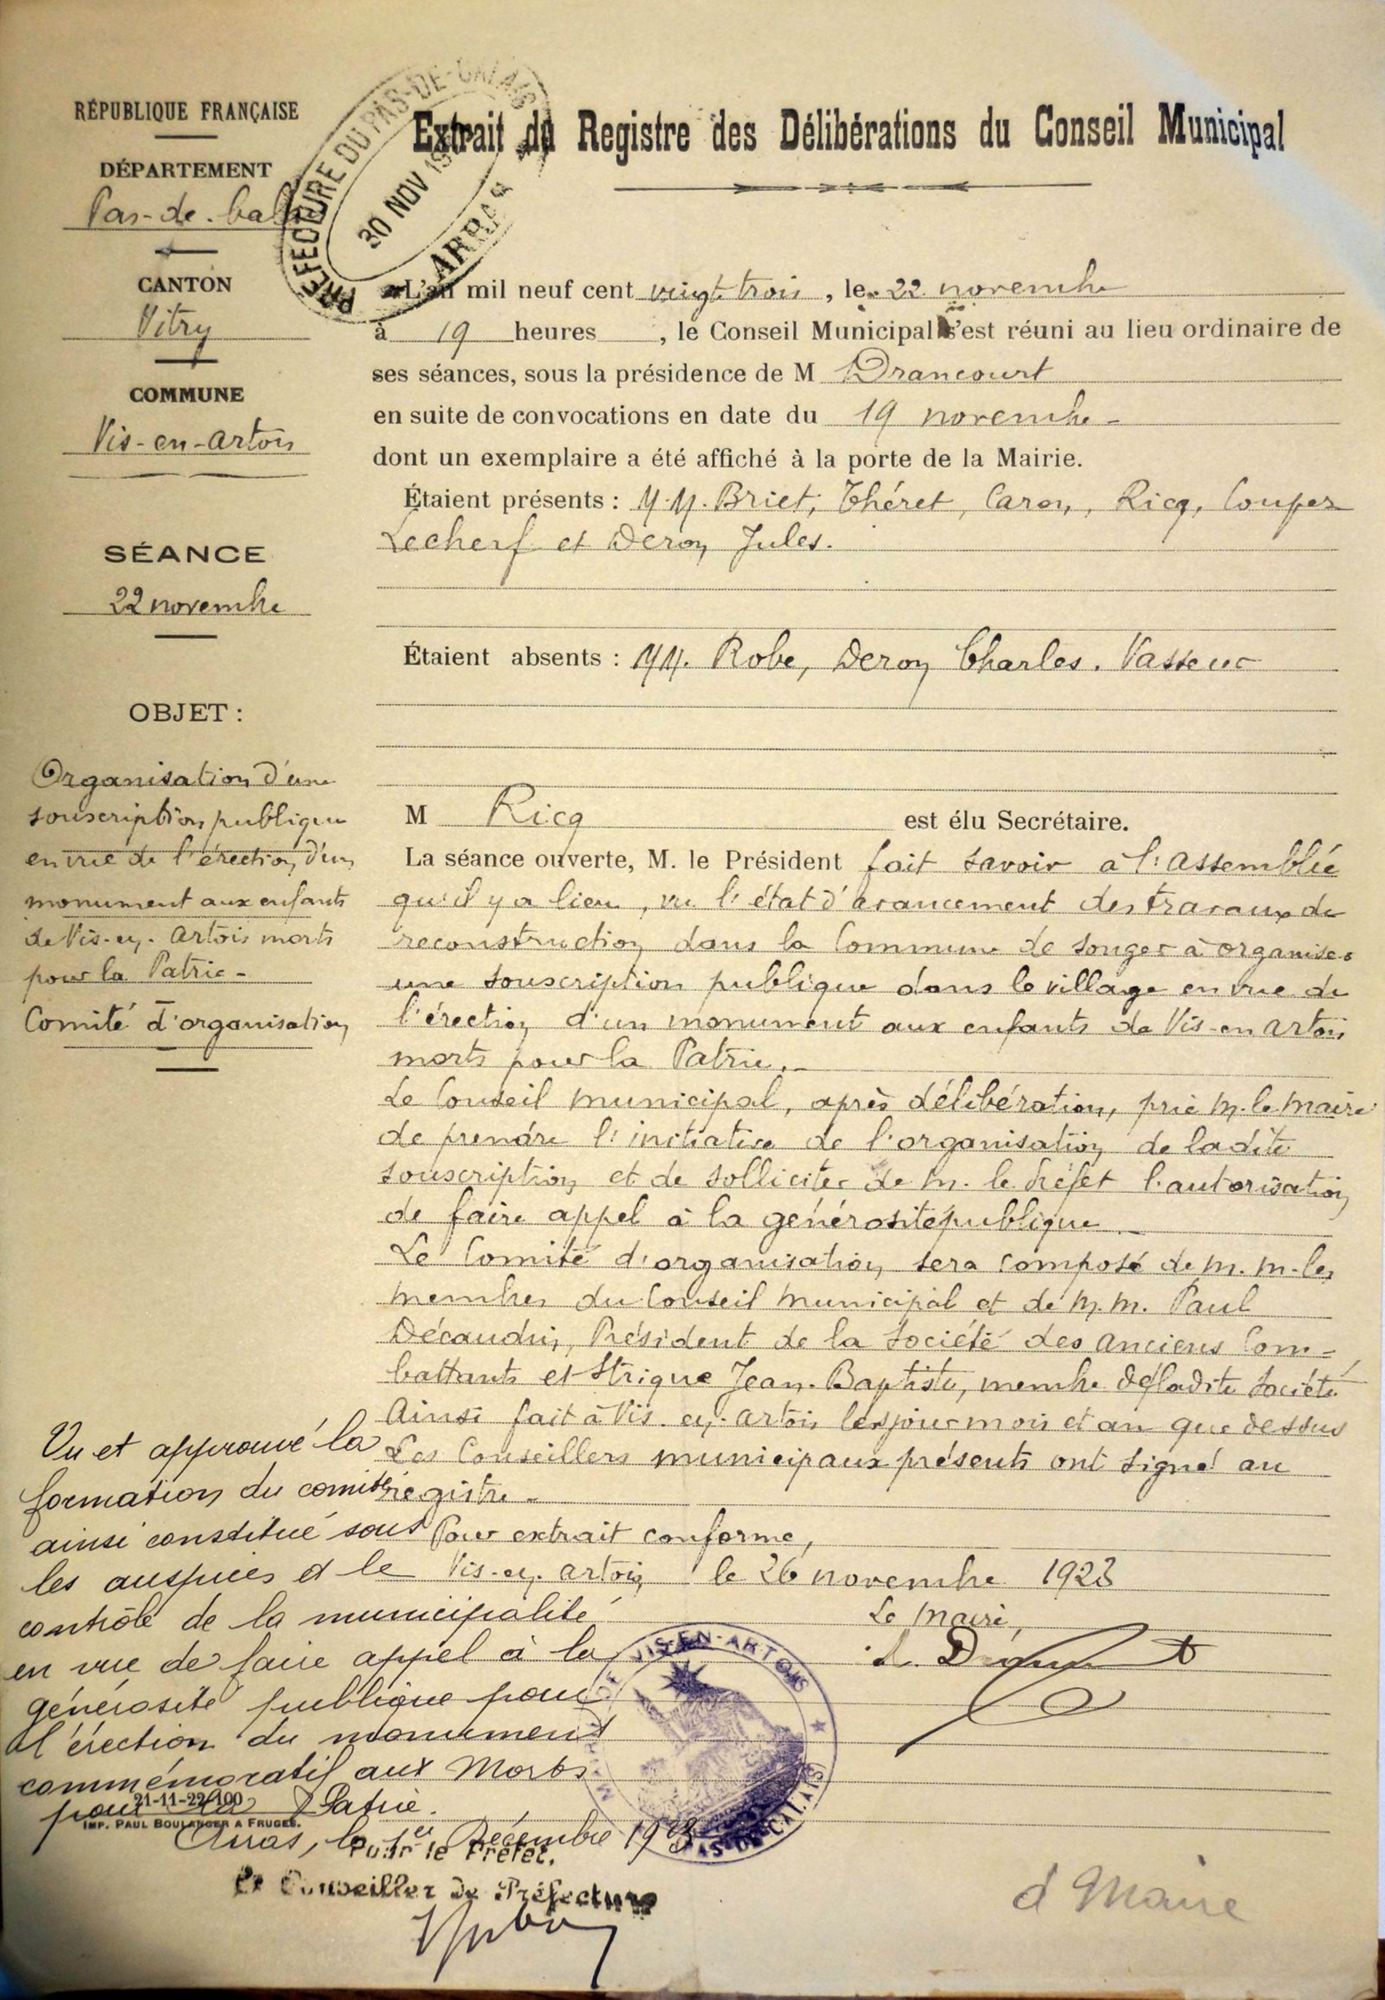 RÉPUBLIQUE FRANÇAISE
DÉPARTEMENT
Pas-de-Calais
CANTON
Vitry
COMMUNE
Vis-en-Artois
SÉANCE
22 novembre
OBJET :
Organisation d'une
souscription publique
en vue de l'érection d'un
monument aux enfants
de Vis-en-Artois morts
pour la Patrie -
Comité d'organisation
PRÉFECTURE DU PAS-DE-CALAIS
30 NOV 19
ARRAS
Extrait du Registre des Délibérations du Conseil Municipal
L'an mil neuf cent vingt trois, le 22 novembre
à 19 heures , le Conseil Municipal s'est réuni au lieu ordinaire de
ses séances, sous la présidence de M Drancourt
en suite de convocations en date du 19 novembre -
dont un exemplaire a été affiché à la porte de la Mairie.
Étaient présents : M.M. Briet, Théret, Caron, Ricq, Coupez
Lecherf et Deron Jules.
Étaient absents : MM. Robe, Deron Charles. Vasseur
M Ricq est élu Secrétaire.
La séance ouverte, M. le Président fait savoir à l'Assemblée
qu'il y a lieu, vu l'état d'avancement des travaux de
reconstruction dans la Commune de songer à organiser
une souscription publique dans le village en vue de
l'érection d'un monument aux enfants de Vis-en Artois
morts pour la Patrie. -
Le Conseil municipal, après délibération, prie M. le Maire
de prendre l'initiative de l'organisation de ladite
souscription et de solliciter de M. le Préfet l'autorisation
de faire appel à la générosité publique -
Le Comité d'organisation sera composé de M. M. les
membres du Conseil municipal et de M. M. Paul
Décaudin, Président de la Société des Anciens Com-
battants et Strique Jean-Baptiste, membre de ladite Société
Ainsi fait à Vis-en-Artois les jour mois et an que dessus
Les Conseillers municipaux présents ont signé au
registre -
Pour extrait conforme,
Vis-en-Artois le 26 novembre 1923
Le Maire,
VIS-EN-ARTOIS
PAS-DE-CALAIS
Vu et approuvé la
formation du comité
ainsi constitué sous
les auspices et le
contrôle de la municipalité
en vue de faire appel à la
générosité publique pour
l'érection du monument
commémoratif aux Morts
pour la Patrie.
21-11-22-100
IMP. PAUL BOULANGER A FRUGES.
Arras, le 1er Décembre 1923
Pour le Préfet,
Le Conseiller de Préfecture
d Maire